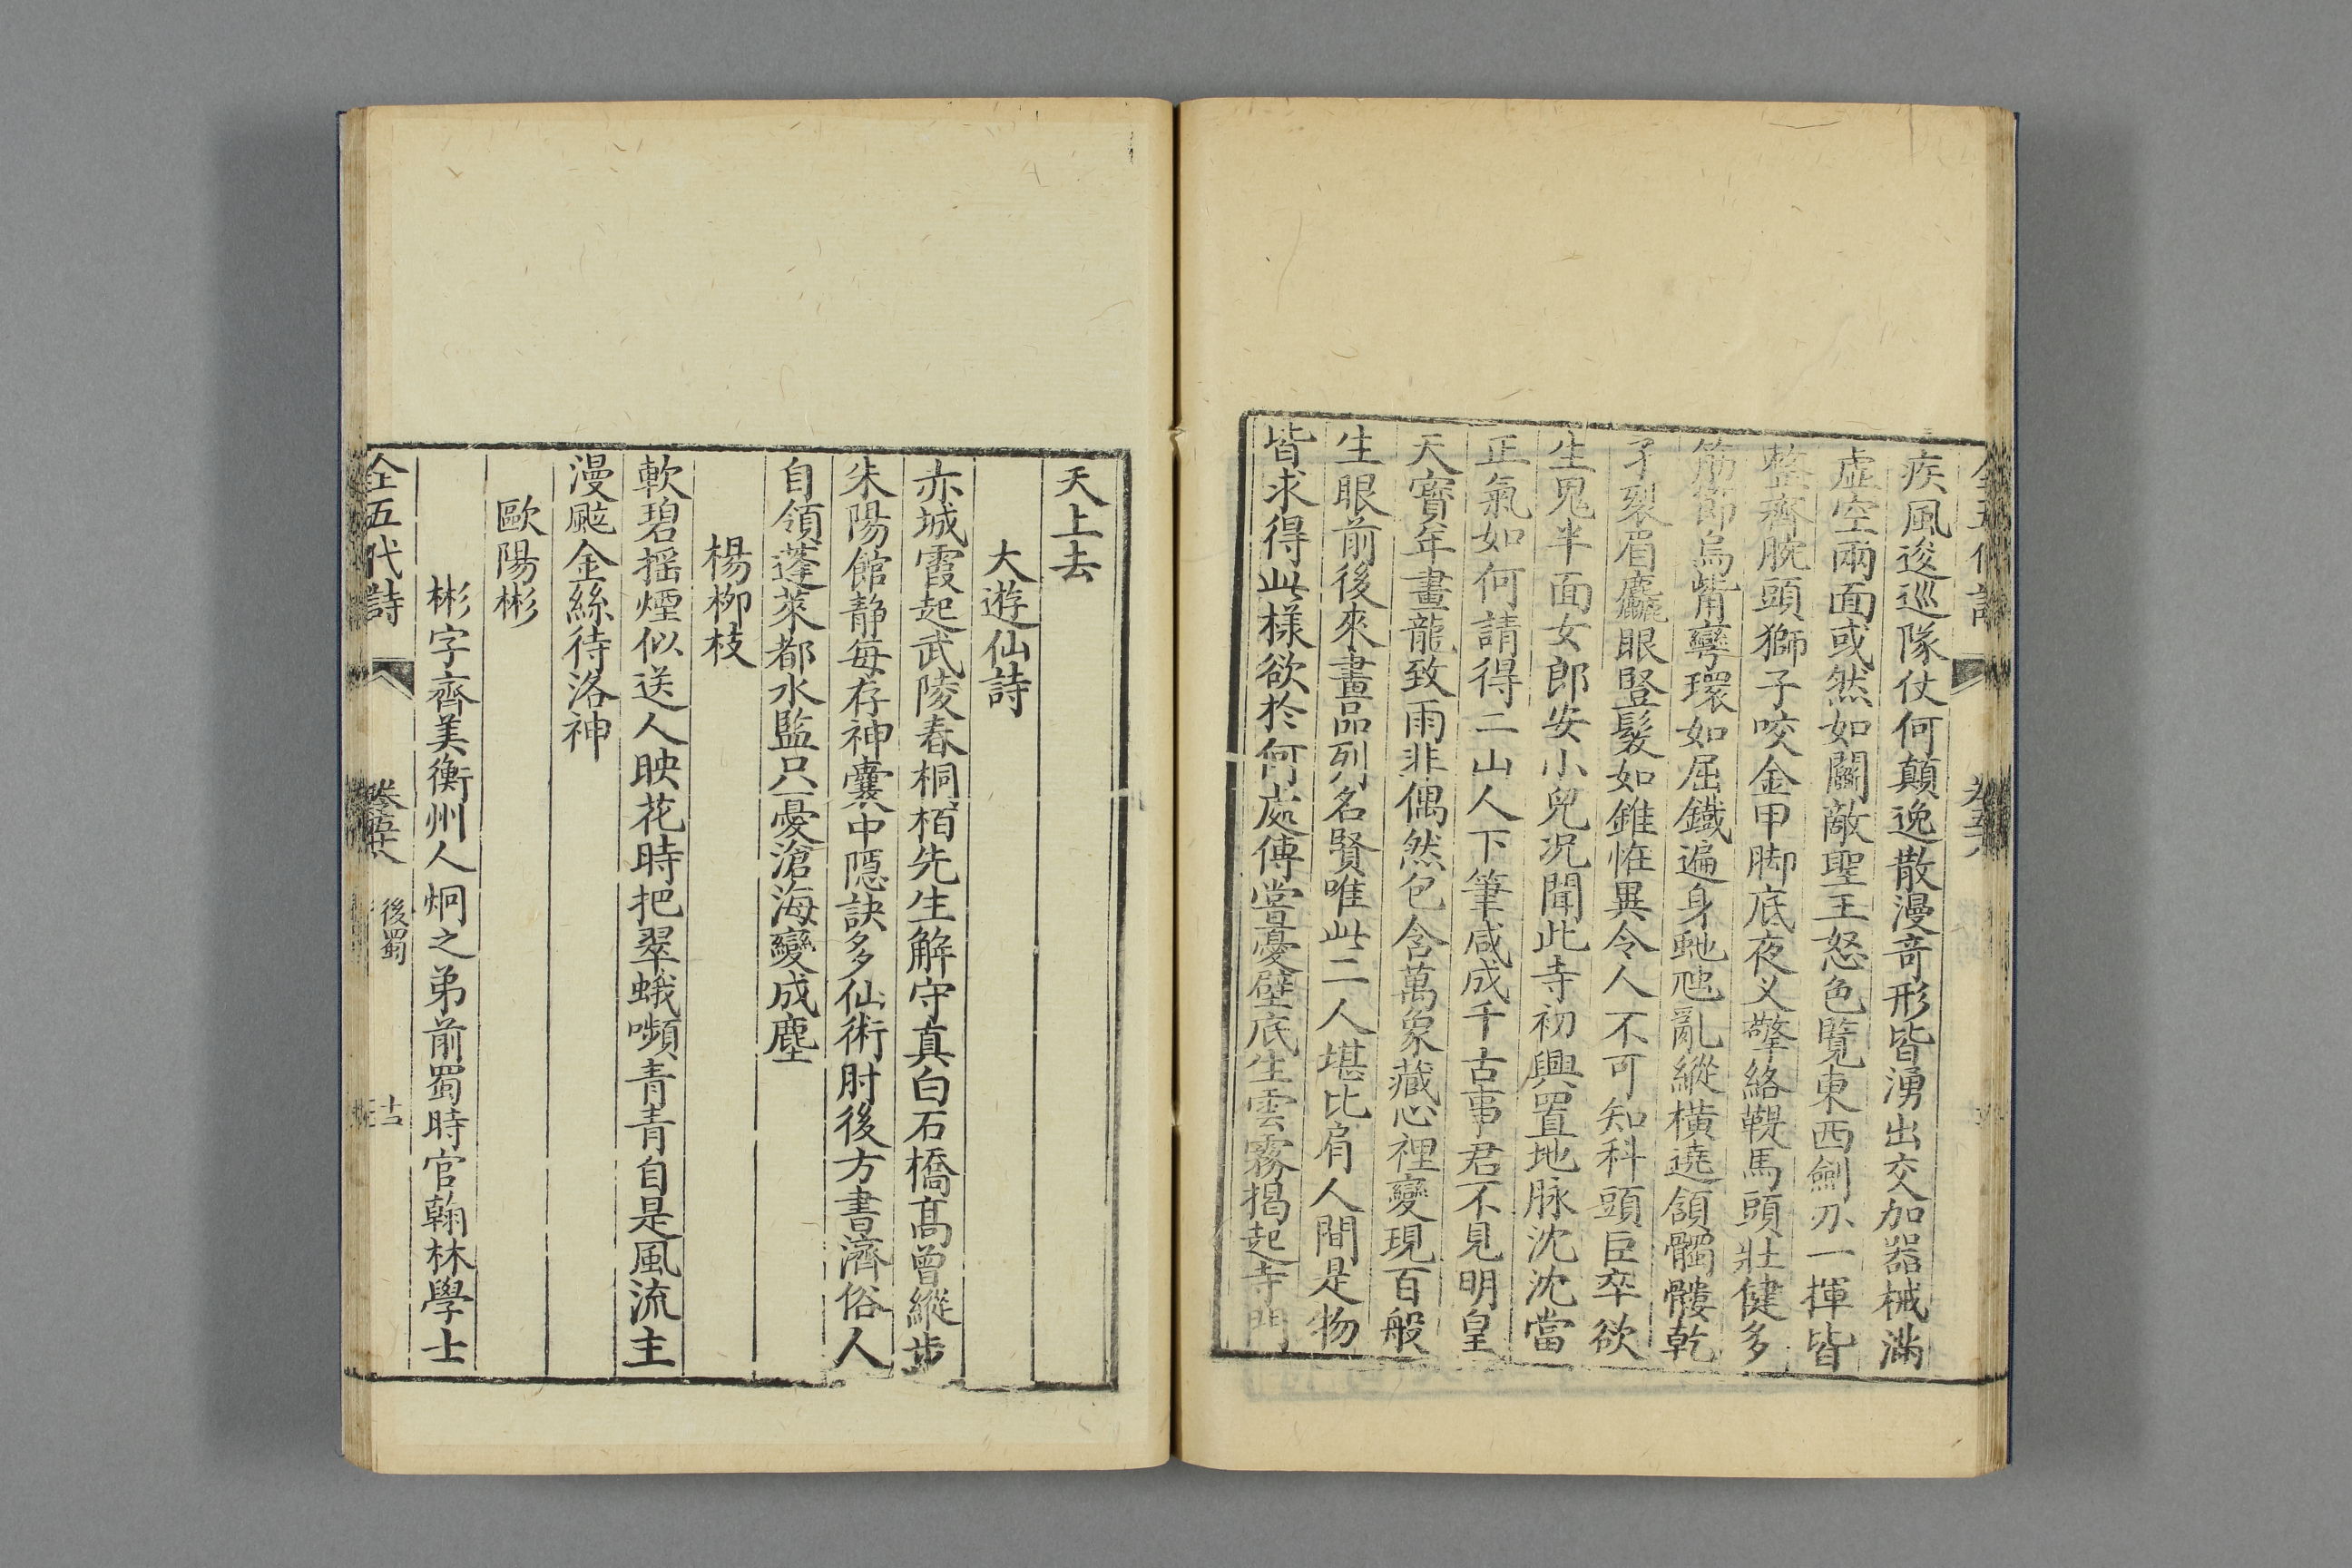 疾風逡巡隊仗何顛逸散漫奇形皆湧出交加器械滿
虛空兩面或然如鬬敵聖王怒色覽東西劍刃一揮皆
整齊腕頭獅子咬金甲脚底夜叉擎絡鞮馬頭壯健多
筋節烏觜彎環如屈鐵遍身虵虺亂縱橫遶頷髑髏乾
孑裂眉麤眼豎髮如錐恠異令人不可知科頭巨卒欲
生鬼半面女郎安小兒況聞此寺初興置地脉沈沈當
正氣如何請得二山人下筆咸成千古事君不見明皇
天寳年畫龍致雨非偶然包含萬象藏心裡變現百般
生眼前後來畫品列名賢唯此二人堪比肩人間是物
皆求得此樣欲於何處傳嘗憂壁底生雲霧揭起寺門
天上去
大遊仙詩
赤城霞起武陵春桐栢先生解守真白石橋髙曾縱步
朱陽館静每存神囊中隱訣多仙術肘後方書濟俗人
自領蓬萊都水監只憂滄海變成塵
楊栁枝
軟碧摇煙似送人映花時把翠蛾嚬青青自是風流主
漫颭金絲待洛神
歐陽彬
彬字齊美衡州人炯之弟前蜀時官翰林學士
全五代詩
後蜀